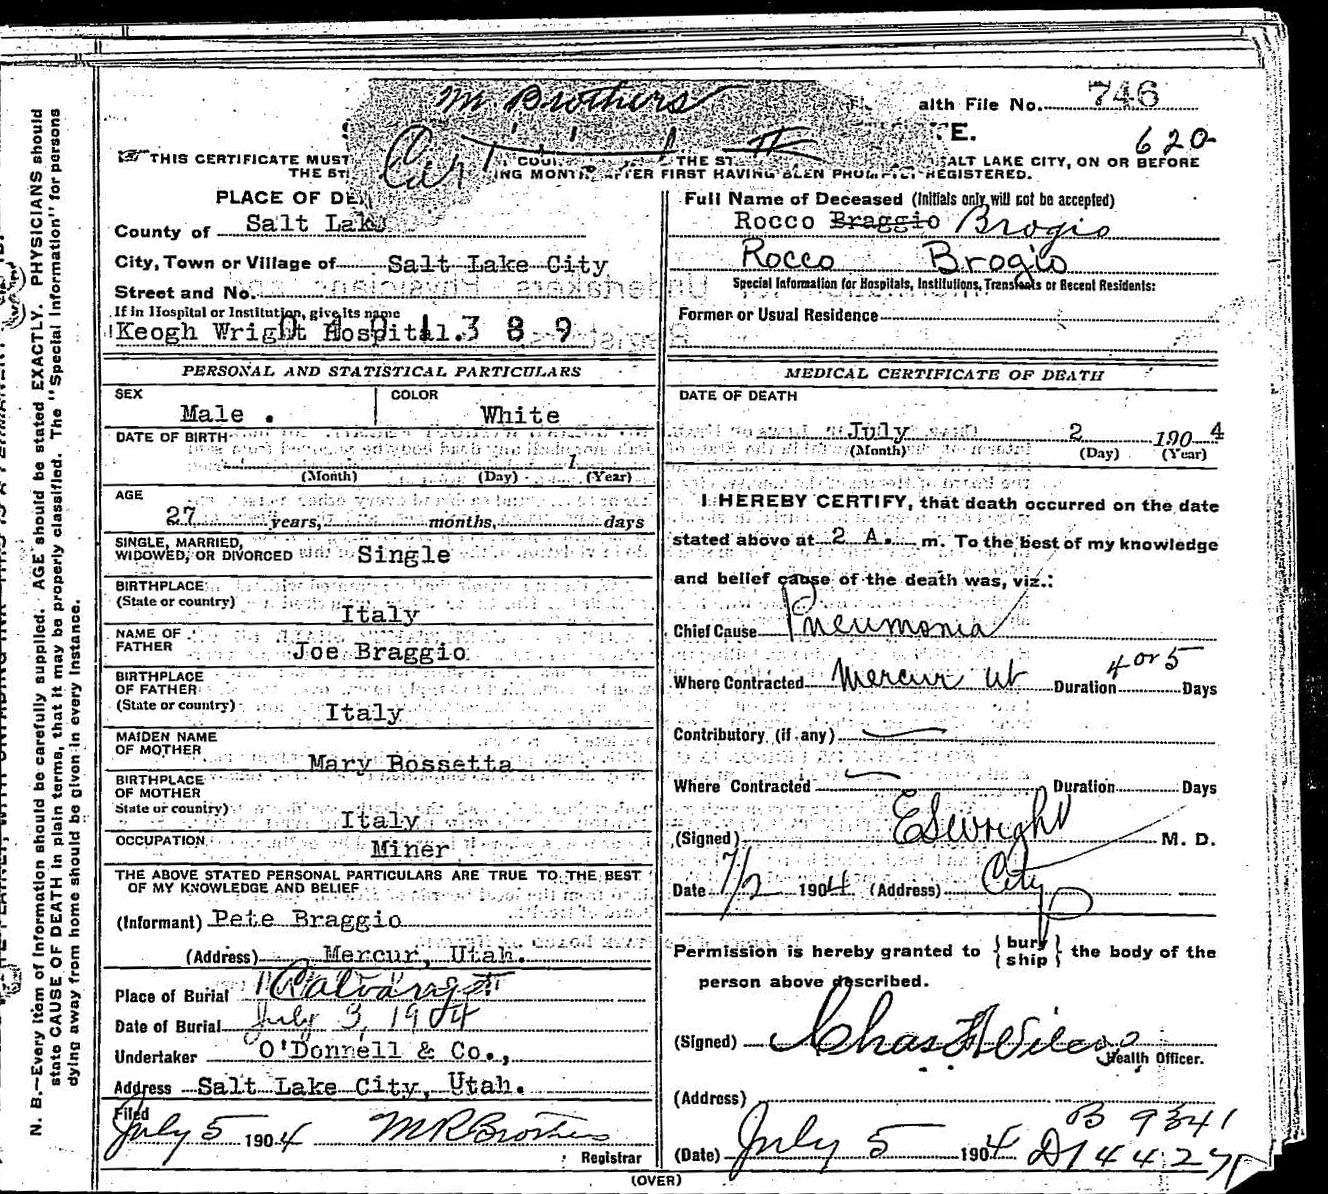 M Brothers
alth File No. 746
TE.
620
Cert
THIS CERTIFICATE MUST
COU
THE ST
SALT LAKE CITY, ON OR BEFORE
THE
ING MONTH AFTER FIRST HAVING BEEN PROMPTLY REGISTERED.
PLACE OF DE
County of Salt Lake
City, Town or Village of Salt Lake City
Street and No.
If in Hospital or Institution, give its name
Keogh Wright Hospital.
0 4 0 1 3 8 9
PERSONAL AND STATISTICAL PARTICULARS
SEX
COLOR
Male .
White
DATE OF BIRTH
1
(Month) (Day) (Year)
AGE
27 years, months, days
SINGLE, MARRIED,
WIDOWED, OR DIVORCED Single
BIRTHPLACE
(State or country)
Italy
NAME OF
FATHER
Joe Braggio
BIRTHPLACE
OF FATHER
(State or country)
Italy
MAIDEN NAME
OF MOTHER
Mary Bossetta
BIRTHPLACE
OF MOTHER
State or country)
Italy
OCCUPATION
Miner
THE ABOVE STATED PERSONAL PARTICULARS ARE TRUE TO THE BEST
OF MY KNOWLEDGE AND BELIEF
(Informant) Pete Braggio
(Address) Mercur, Utah.
Place of Burial Calvary
Date of Burial July 3, 1904
Undertaker O'Donnell & Co.,
Address Salt Lake City, Utah.
Filed
July 5 1904 M R Brothers
Registrar
Full Name of Deceased (Initials only will not be accepted)
Rocco Braggio Brogio
Rocco Brogio
Special Information for Hospitals, Institutions, Transients or Recent Residents:
Former or Usual Residence
MEDICAL CERTIFICATE OF DEATH
DATE OF DEATH
July 2 1904
(Month) (Day) (Year)
I HEREBY CERTIFY, that death occurred on the date
stated above at 2 A. m. To the best of my knowledge
and belief cause of the death was, viz.:
Chief Cause Pneumonia
Where Contracted Mercur Ut Duration 4 or 5 Days
Contributory (if any)
Where Contracted Duration Days
(Signed) E S Wright M. D.
Date 7/2 1904 (Address) City
Permission is hereby granted to { bury ship } the body of the
person above described.
(Signed)
Health Officer.
(Address)
B 9341
(Date) July 5 1904
D14427
(OVER)
N. B.—Every item of information should be carefully supplied. AGE should be stated EXACTLY. PHYSICIANS should
state CAUSE OF DEATH in plain terms, that it may be properly classified. The "Special Information" for persons
dying away from home should be given in every instance.